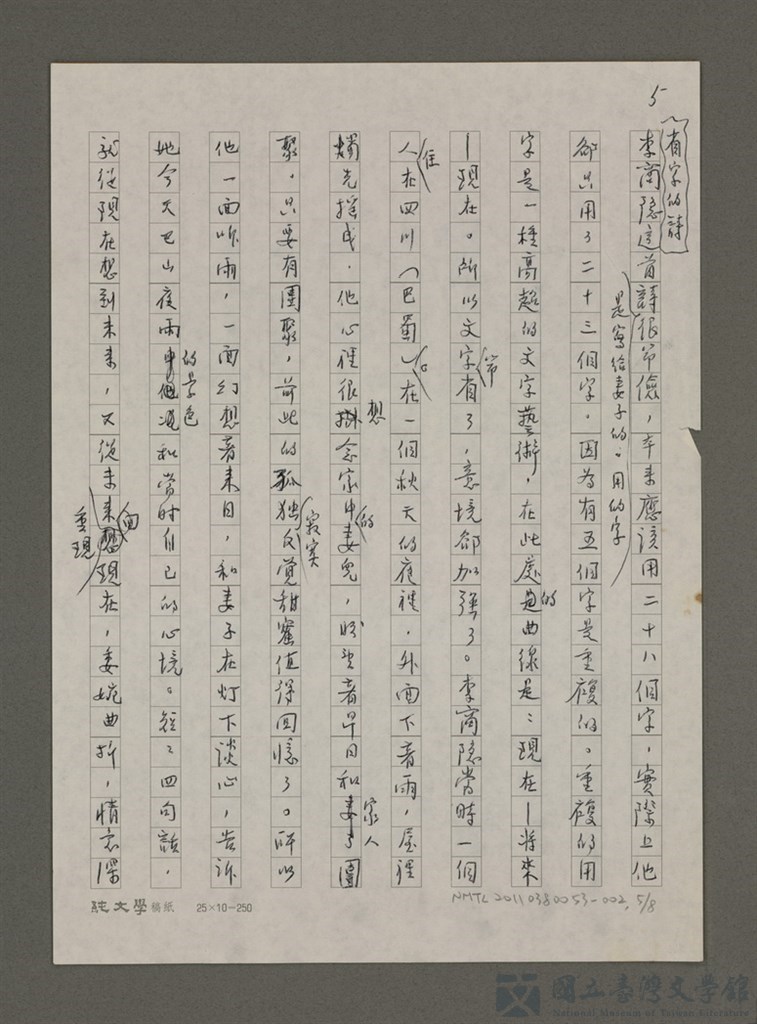 5
省字的詩
李商隱這首詩很節儉，本來應該用二十八個字，實際上他
是寫給妻子的。用的字
卻只用了二十三個字。因為有五個字是重複的。重複的用
字是一種高超的文字藝術，在此處的曲線是：現在—將來
—現在。所以文字省了，意境卻加強了。李商隱當時一個
節
人住在四川（巴蜀），在一個秋天的夜裡，外面下著雨，屋裡
燭光搖曳．他心裡很想念家中的妻兒，盼望著早日和家人團
聚，只要有團聚，前此的孤獨寂寞反覺甜蜜值得回憶了。所以
他一面听雨，一面幻想著來日，和妻子在灯下談心，告訴
她今天巴山夜雨的景色和當時自己的心境。短短四句話，
就從現在想到未來，又從未來回
重現
現在，委婉曲折，情意深
純文學稿紙 25×10-250
NMTL 20110380053-002, 5/8
國立臺灣文學館
National Museum of Taiwan Literature